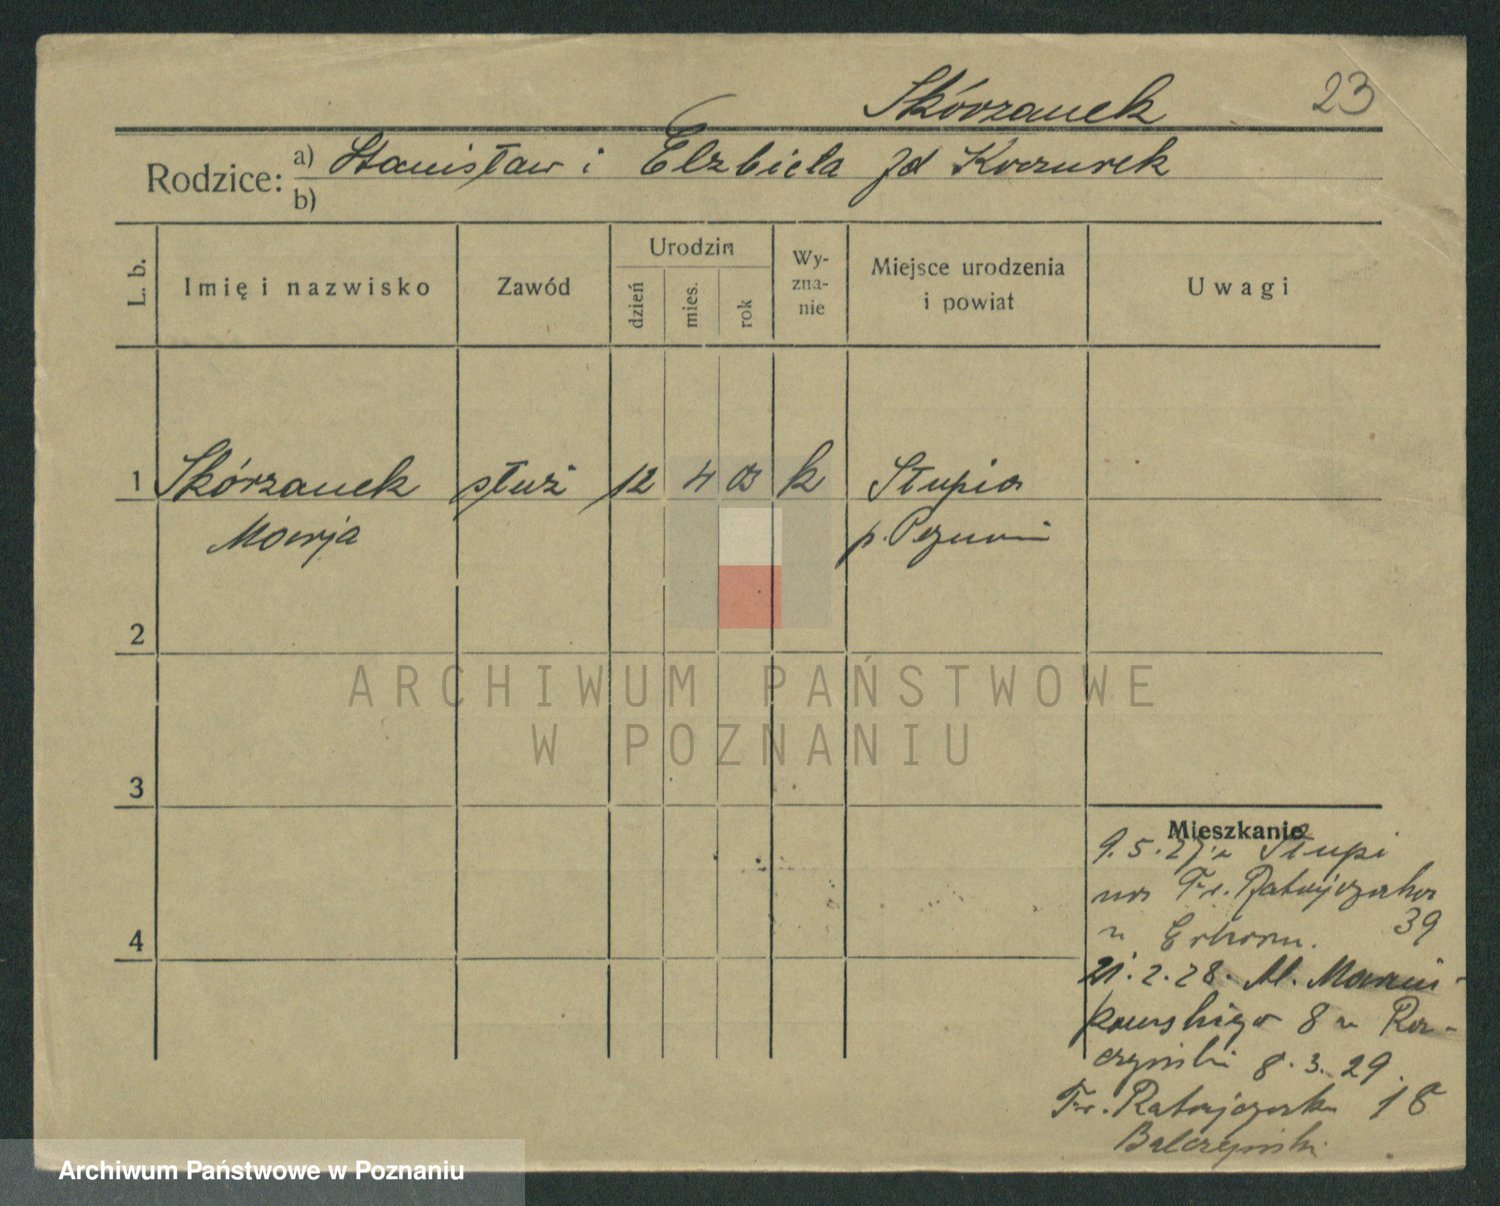 Skórzanek 23
Rodzice: a) Stanisław i Elżbieta
b)
L. b. Imię i nazwisko Zawód Urodzin dzień mies. rok Wyznanie Miejsce urodzenia i powiat Uwagi
1 Skórzanek służ 12 4 03 k Słupia
Marja p. Poznań
2
ARCHIWUM PAŃSTWOWE
W POZNANIU
3
Mieszkanie
9.5.27 z Słupi
na Fr. Ratajczaka
39
4
21.2.28. Al. Marcin-
kowskiego 8 u
8.3.29.
Fr. Ratajczaka 18
Archiwum Państwowe w Poznaniu